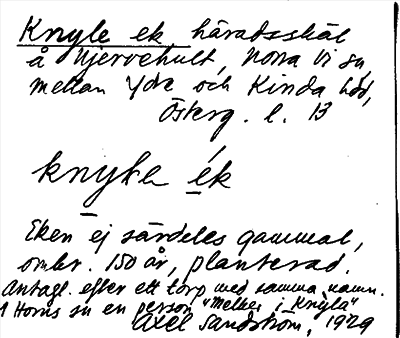 Knyle ek häradsskäl
å Njervehult, Norra Vi sn,
mellan Ydre och Kinda hdr,
Österg. l. 13
knyle ék
Eken ej särdeles gammal,
omkr. 150 år, planterad.
Antagl. efter ett torp med samma namn.
I Horns sn en person "Melker i Knyla"
Axel Sandström, 1929